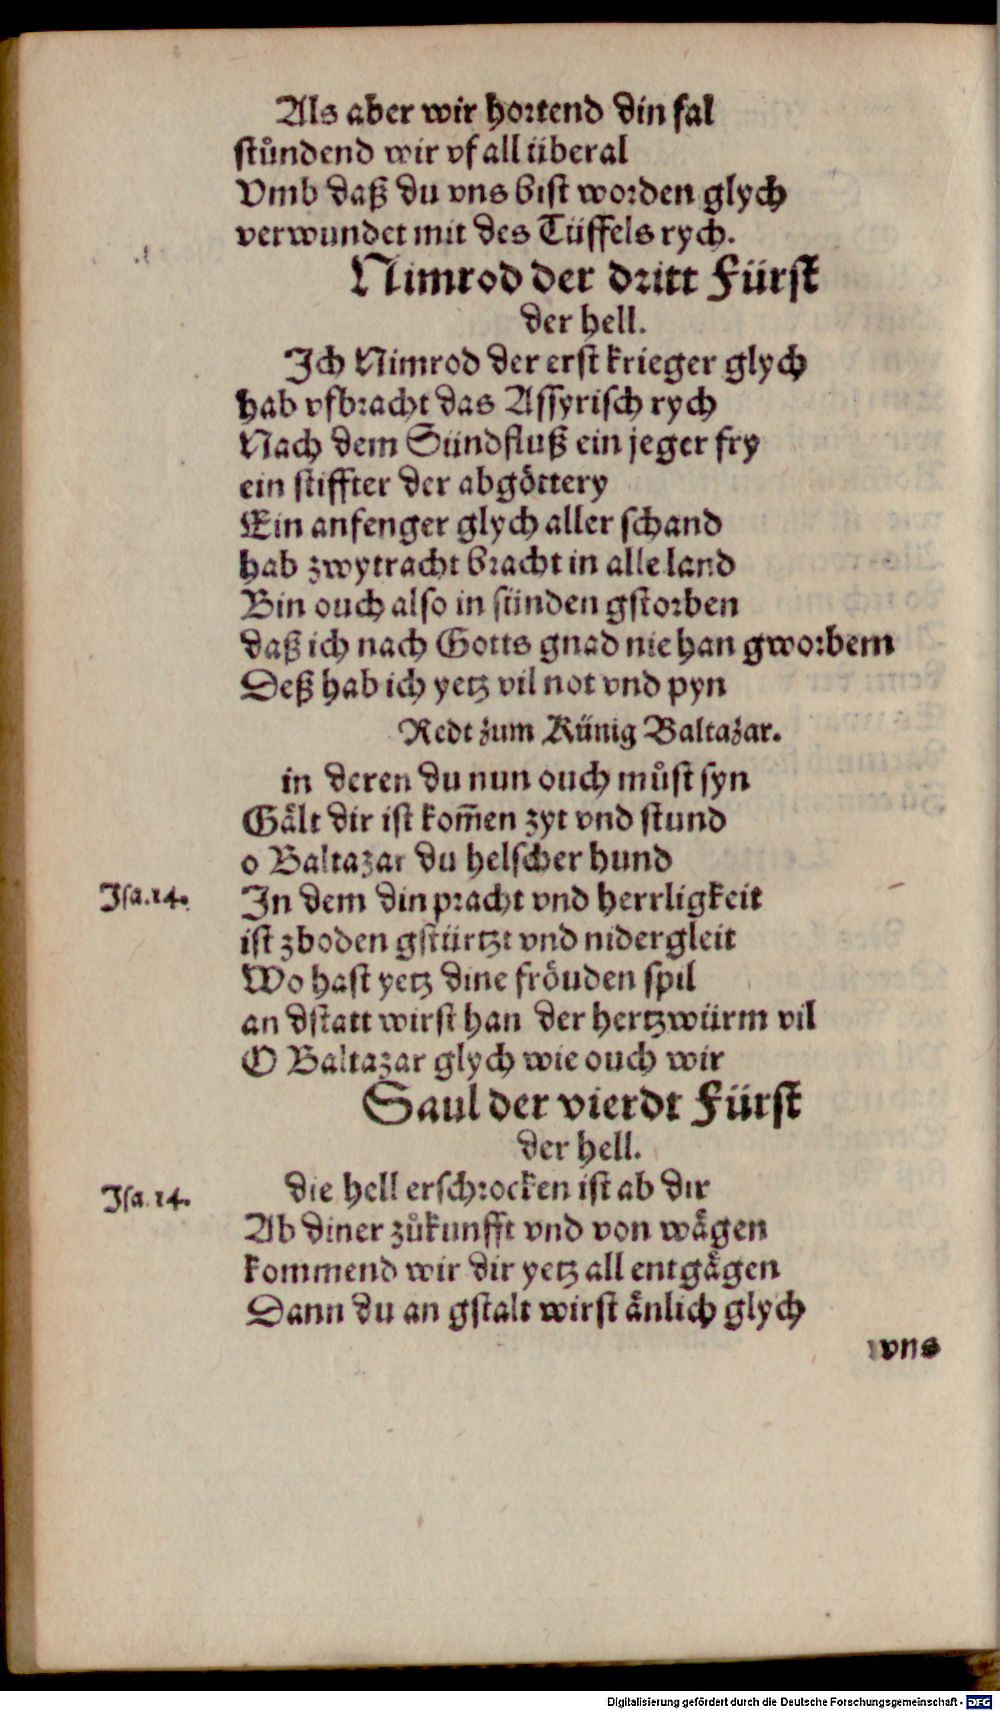 Als aber wir hortend din fal
stůndend wir vf all überal
Vmb daß du vns bist worden glych
verwundet mit des Tüffels rych.
Nimrod der dritt Fürst
der hell.
Ich Nimrod der erst krieger glych
hab vfbracht das Assyrisch rych
Nach dem Sündfluß ein jeger fry
ein stiffter der abgöttery
Ein anfenger glych aller schand
hab zwytracht bracht in alle land
Bin ouch also in sünden gstorben
daß ich nach Gotts gnad nie han gworbem
Deß hab ich yetz vil not vnd pyn
Redt zum Künig Baltazar.
in deren du nun ouch můst syn
Gält dir ist kom̄en zyt vnd stund
o Baltazar du helscher hund
Isa.14. In dem din pracht vnd herrligkeit
ist zboden gstürtzt vnd nidergleit
Wo hast yetz dine fröuden spil
an dstatt wirst han der hertzwürm vil
O Baltazar glych wie ouch wir
Saul der vierdt Fürst
der hell.
Isa.14. die hell erschrocken ist ab dir
Ab diner zůkunfft vnd von wägen
kommend wir dir yetz all entgägen
Dann du an gstalt wirst änlich glych
vns
Digitalisierung gefördert durch die Deutsche Forschungsgemeinschaft - DFG